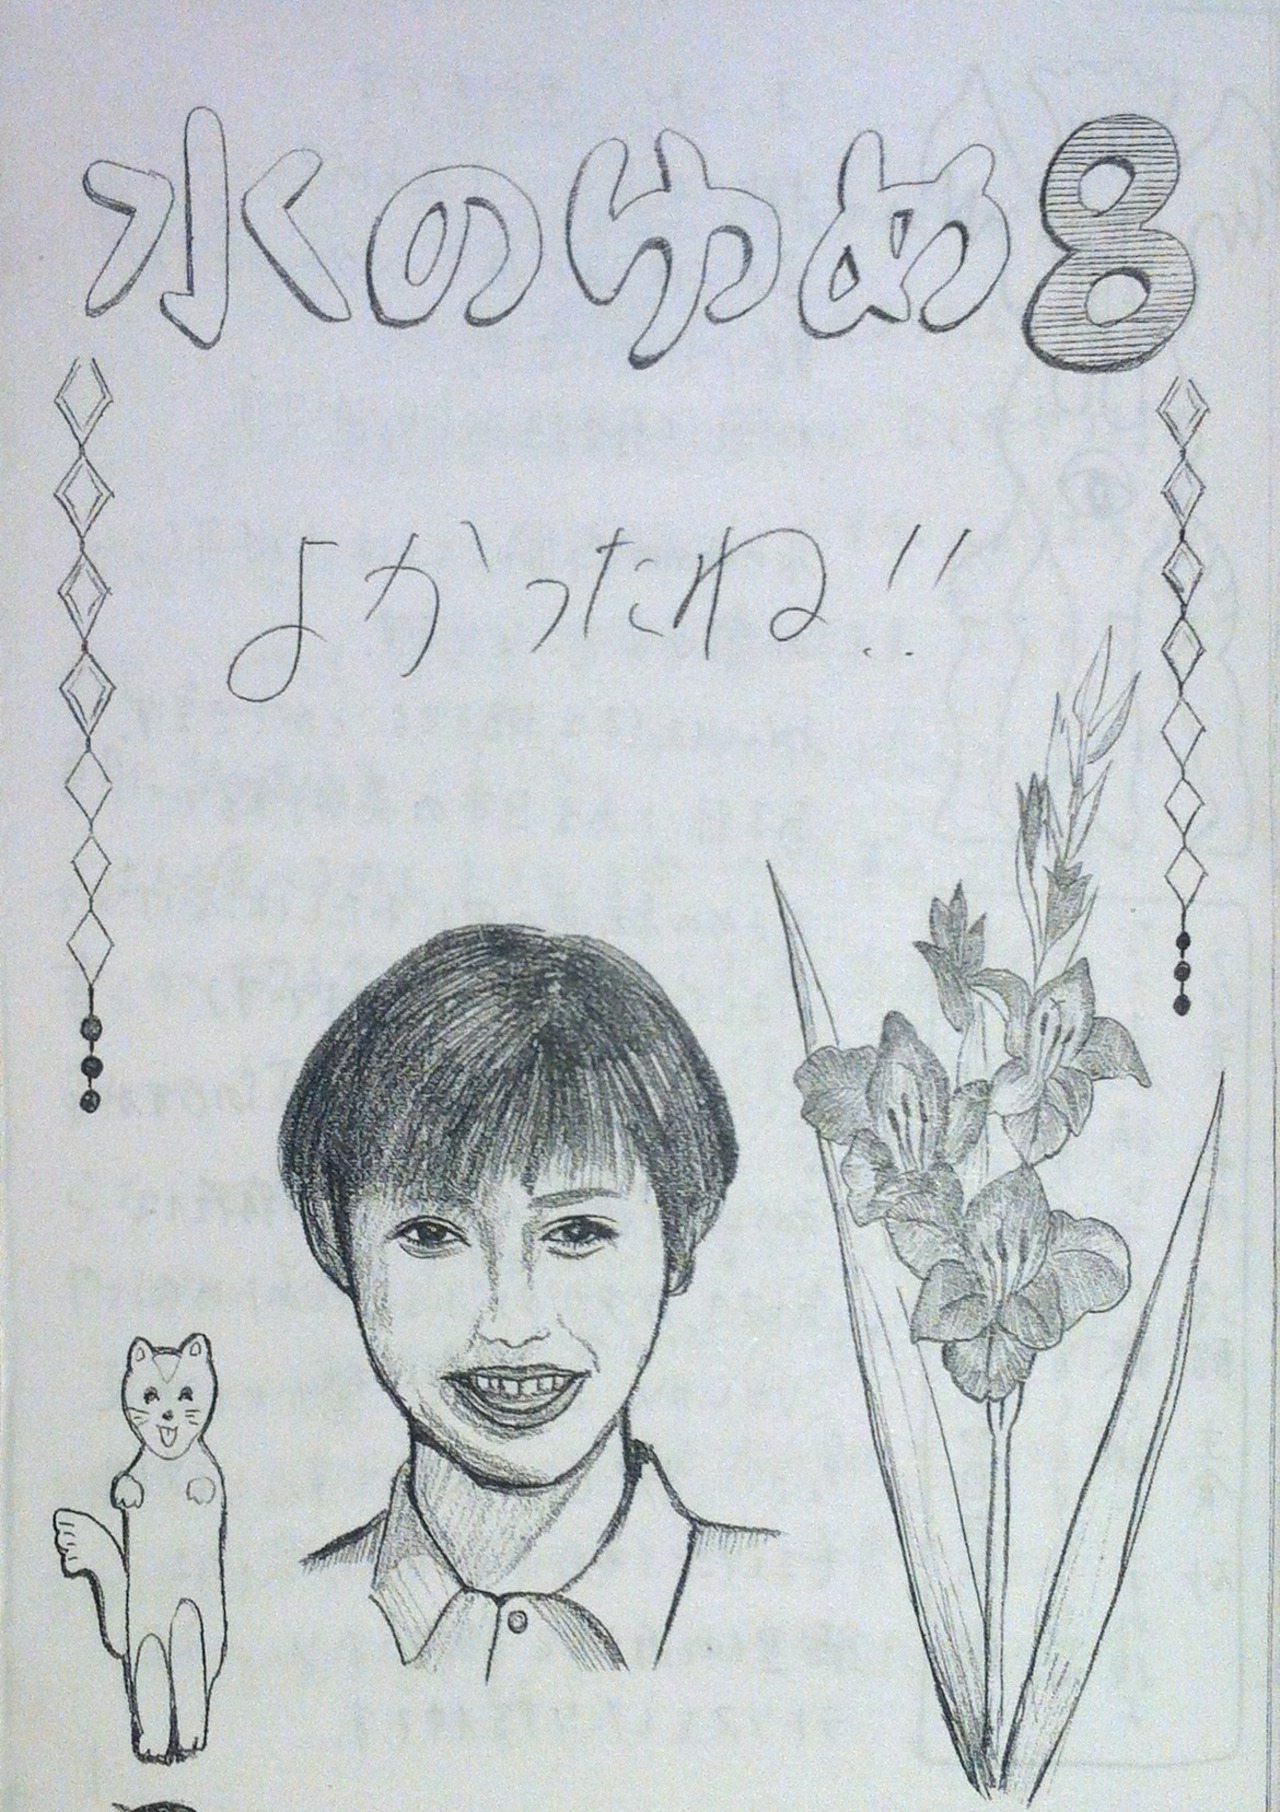 水のゆめ8
よかったね!!